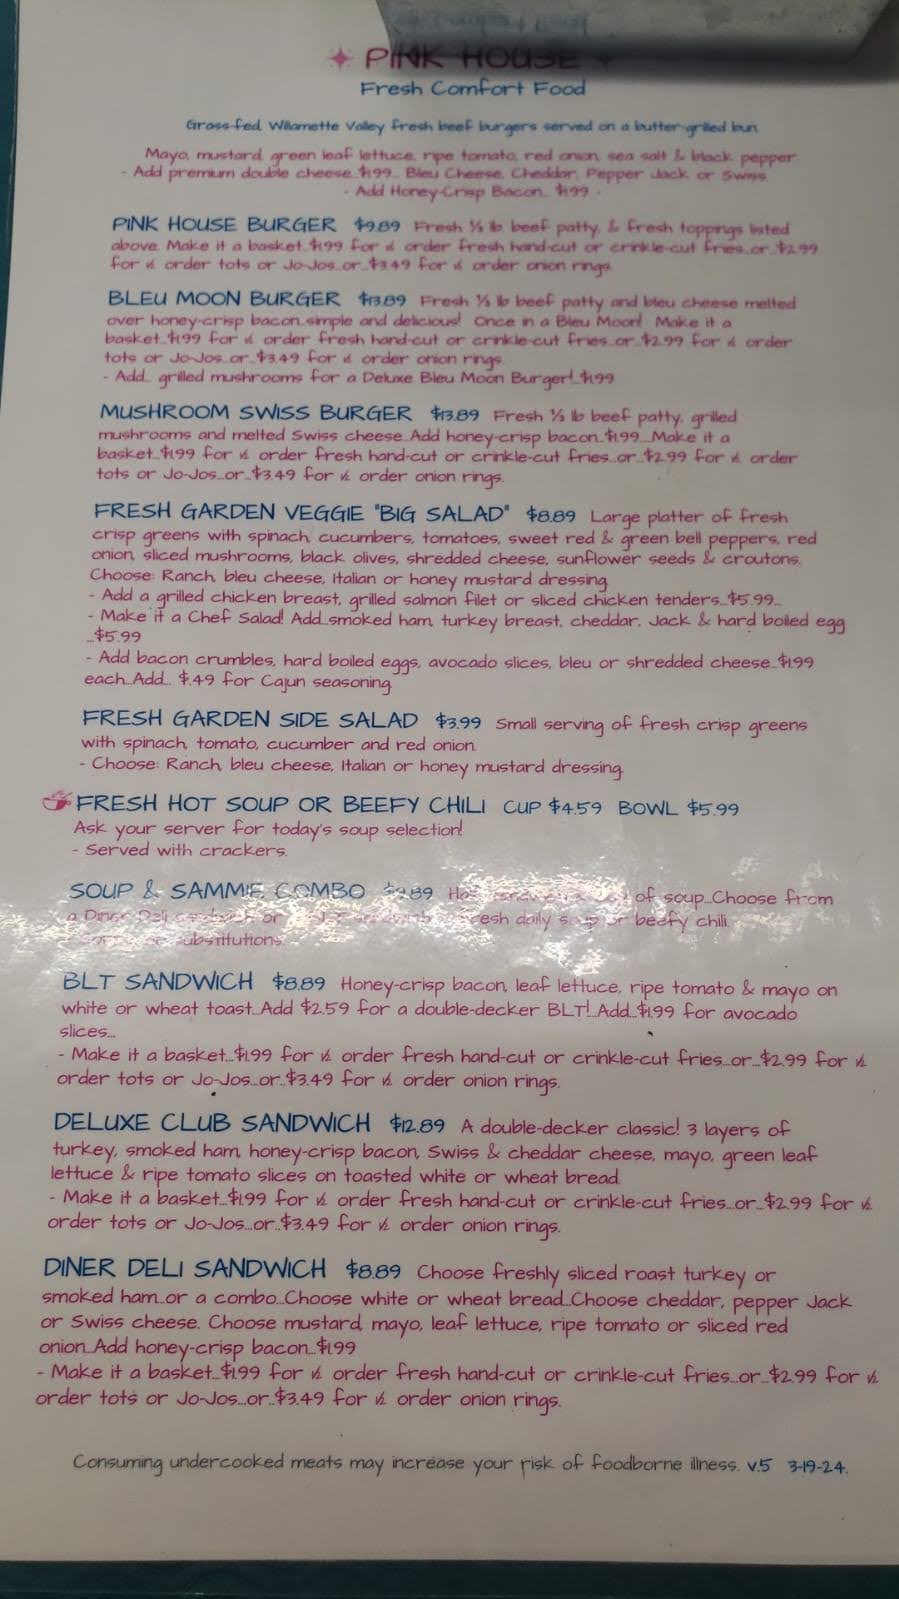 PINK HOUSE
Fresh Comfort Food
Grass-fed, Willamette Valley fresh beef burgers served on a butter-grilled bun.
Mayo, mustard, green leaf lettuce, ripe tomato, red onion, sea salt & black pepper.
- Add premium double cheese..$1.99... Bleu Cheese, Cheddar, Pepper Jack or Swiss.
- Add Honey-Crisp Bacon... $1.99 -
PINK HOUSE BURGER $9.89 Fresh ⅓ lb beef patty, & fresh toppings listed
above. Make it a basket..$1.99 for ½ order fresh hand-cut or crinkle-cut fries...or...$2.99
for ½ order tots or Jo-Jos...or..$3.49 for ½ order onion rings.
BLEU MOON BURGER $13.89 Fresh ⅓ lb beef patty and bleu cheese melted
over honey-crisp bacon...simple and delicious! Once in a Bleu Moon! Make it a
basket..$1.99 for ½ order fresh hand-cut or crinkle-cut fries...or...$2.99 for ½ order
tots or Jo-Jos...or...$3.49 for ½ order onion rings.
- Add... grilled mushrooms for a Deluxe Bleu Moon Burger!..$1.99
MUSHROOM SWISS BURGER $13.89 Fresh ⅓ lb beef patty, grilled
mushrooms and melted Swiss cheese...Add honey-crisp bacon..$1.99...Make it a
basket..$1.99 for ½ order fresh hand-cut or crinkle-cut fries...or...$2.99 for ½ order
tots or Jo-Jos...or...$3.49 for ½ order onion rings.
FRESH GARDEN VEGGIE "BIG SALAD" $8.89 Large platter of fresh
crisp greens with spinach, cucumbers, tomatoes, sweet red & green bell peppers, red
onion, sliced mushrooms, black olives, shredded cheese, sunflower seeds & croutons.
Choose: Ranch, bleu cheese, Italian or honey mustard dressing.
- Add a grilled chicken breast, grilled salmon filet or sliced chicken tenders...$5.99...
- Make it a Chef Salad! Add...smoked ham, turkey breast, cheddar, Jack & hard boiled egg
...$5.99
- Add bacon crumbles, hard boiled eggs, avocado slices, bleu or shredded cheese...$1.99
each...Add... $.49 for Cajun seasoning.
FRESH GARDEN SIDE SALAD $3.99 Small serving of fresh crisp greens
with spinach, tomato, cucumber and red onion.
- Choose: Ranch, bleu cheese, Italian or honey mustard dressing.
FRESH HOT SOUP OR BEEFY CHILI CUP $4.59 BOWL $5.99
Ask your server for today's soup selection!
- Served with crackers.
SOUP & SAMMIE COMBO of soup...Choose from
a Diner Deli sandwich or fresh daily soup or beefy chili.
substitutions.
BLT SANDWICH $8.89 Honey-crisp bacon, leaf lettuce, ripe tomato & mayo on
white or wheat toast...Add $2.59 for a double-decker BLT!...Add...$1.99 for avocado
slices...
- Make it a basket...$1.99 for ½ order fresh hand-cut or crinkle-cut fries...or...$2.99 for ½
order tots or Jo-Jos...or...$3.49 for ½ order onion rings.
DELUXE CLUB SANDWICH $12.89 A double-decker classic! 3 layers of
turkey, smoked ham, honey-crisp bacon, Swiss & cheddar cheese, mayo, green leaf
lettuce & ripe tomato slices on toasted white or wheat bread.
- Make it a basket...$1.99 for ½ order fresh hand-cut or crinkle-cut fries...or...$2.99 for ½
order tots or Jo-Jos...or...$3.49 for ½ order onion rings.
DINER DELI SANDWICH $8.89 Choose freshly sliced roast turkey or
smoked ham...or a combo...Choose white or wheat bread...Choose cheddar, pepper Jack
or Swiss cheese. Choose mustard, mayo, leaf lettuce, ripe tomato or sliced red
onion...Add honey-crisp bacon...$1.99
- Make it a basket...$1.99 for ½ order fresh hand-cut or crinkle-cut fries...or...$2.99 for ½
order tots or Jo-Jos...or...$3.49 for ½ order onion rings.
Consuming undercooked meats may increase your risk of foodborne illness. v.5 3-19-24.